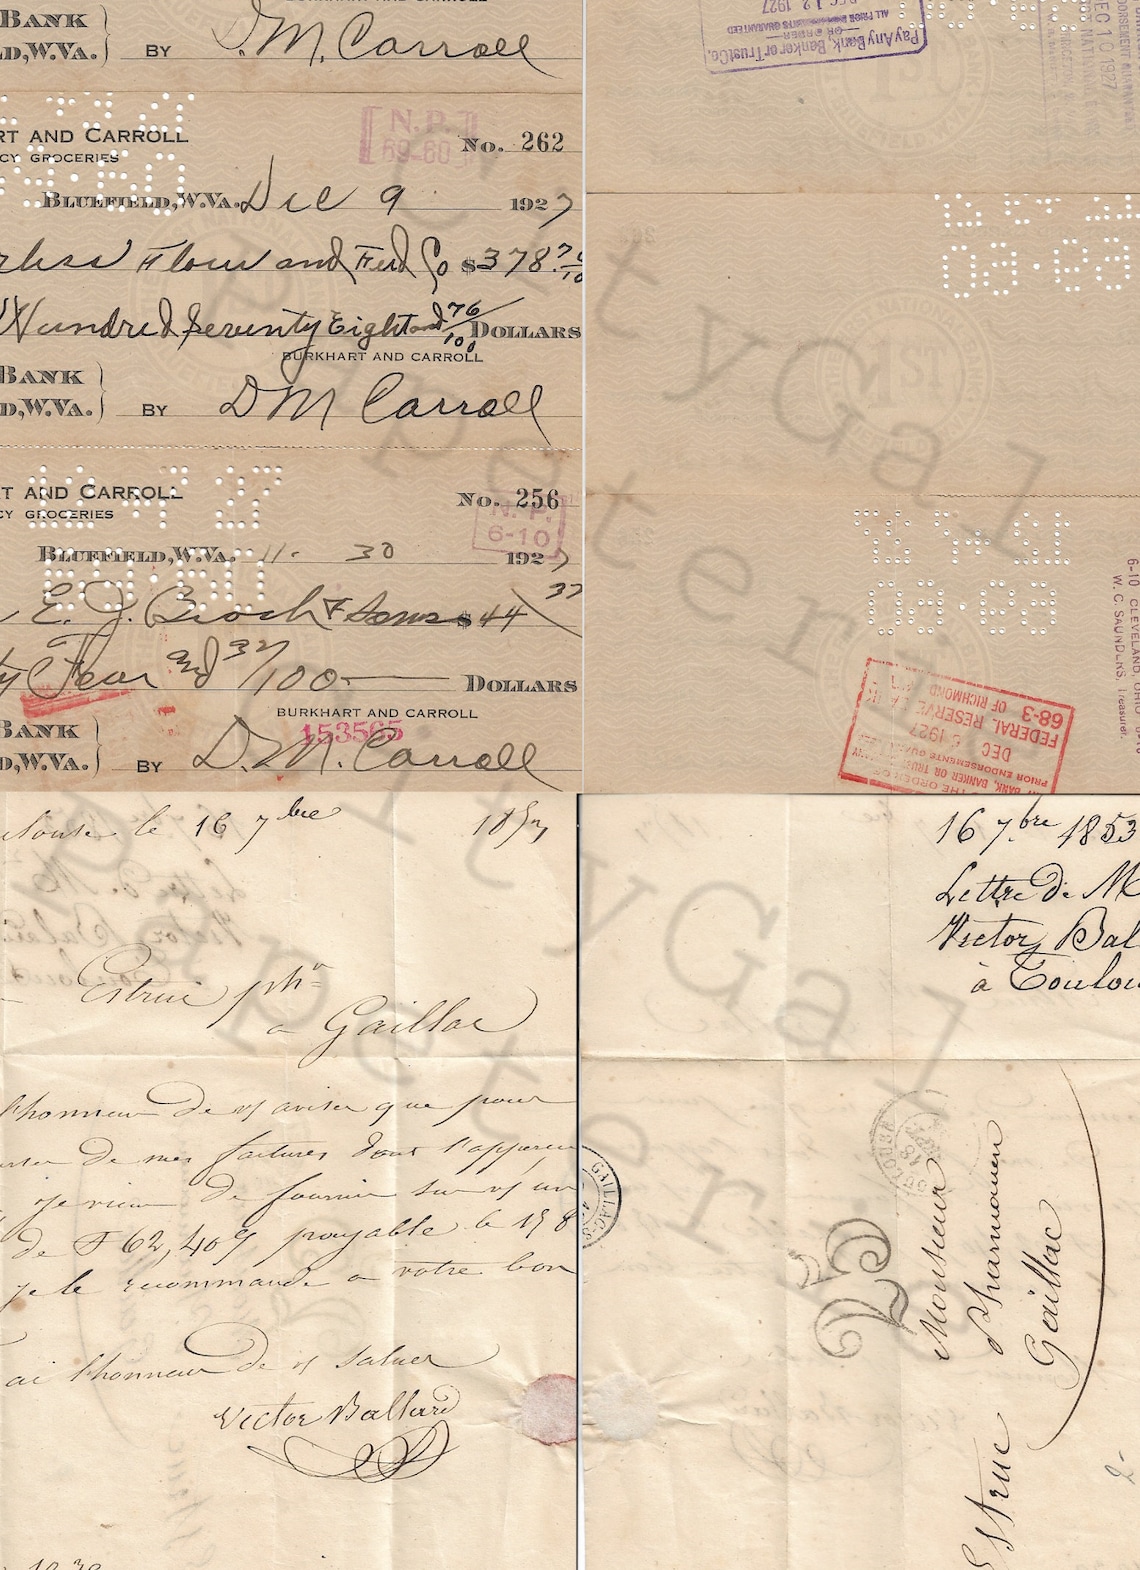 BURKHART AND CARROLL
BANK
D,W.VA. BY D.M. Carroll
RT AND CARROLL
CY GROCERIES
N.P.
69-60
No. 262
BLUEFIELD,W.VA. Dec 9 1927
rless Flour and Feed Co $378.76/100
Hundred Seventy Eight and 76/100 DOLLARS
BURKHART AND CARROLL
BANK
D,W.VA. BY D M Carroll
T AND CARROLL
CY GROCERIES
No. 256
N.P.
6-10
BLUEFIELD,W.VA. 11- 30 1927
E. J. Broch & Sons $44 37
ty Four and 37/100 DOLLARS
BURKHART AND CARROLL
153565
BANK
D,W.VA. BY D.M. Carroll
DEC 12 1927
ALL PRIOR ENDORSEMENTS GUARANTEED
OR ORDER
Pay Any Bank Banker or Trust Co.
DEC 10 1927
6-10 CLEVELAND, OHIO
W. C. SAUNDERS, Treasurer.
THE ORDER OF
BANK, BANKER OR TRUST
PRIOR ENDORSEMENTS GUARANTEED
DEC 5 1927
FEDERAL RESERVE BANK
OF RICHMOND
68-3
louse le 16 7bre 185
Estruc phn
a Gaillac
l'honneur de vs aviser que pour
de mes factures dont l'apoyeu
je viens de fournir sur vs un
de F 62,40 payable le 15 8
je le recommande a votre bon
ai l'honneur de vs saluer
Victor Ballard
16 7.bre 1853
Lettre de M
Victor Bal
à Toulou
TOULOUSE
GAILLAC-S
Monsieur
Estruc
Pharmacien
Gaillac
KittyGal
Papeterie
KittyGal
Papeterie